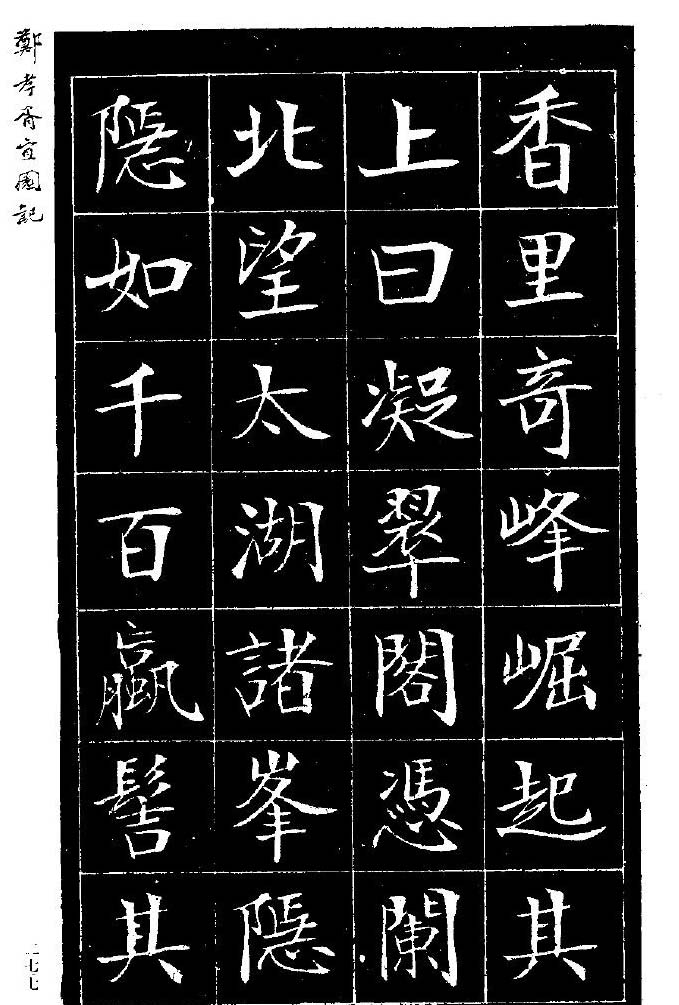 香里竒峰崛起其
上曰凝翠閣憑闌
北望太湖諸峯隱
隱如千百蠃髻其
鄭孝胥宜園記
二七七